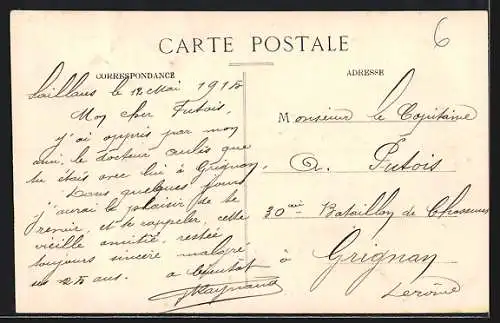 6
CARTE POSTALE
CORRESPONDANCE
ADRESSE
Saillans le 12 Mai 1915
Mon cher Putois,
j'ai appris par mon
ami, le docteur que
tu étais avec lui à Grignan.
Dans quelques jours
j'aurai le plaisir de te
revoir, et te rappeler, cette
vieille amitié, restée
toujours sincère malgré
ses 25 ans.
a bientôt
Raynaud
Monsieur le Capitaine
A. Putois
30ème Bataillon de Chasseurs
à Grignan
Drôme